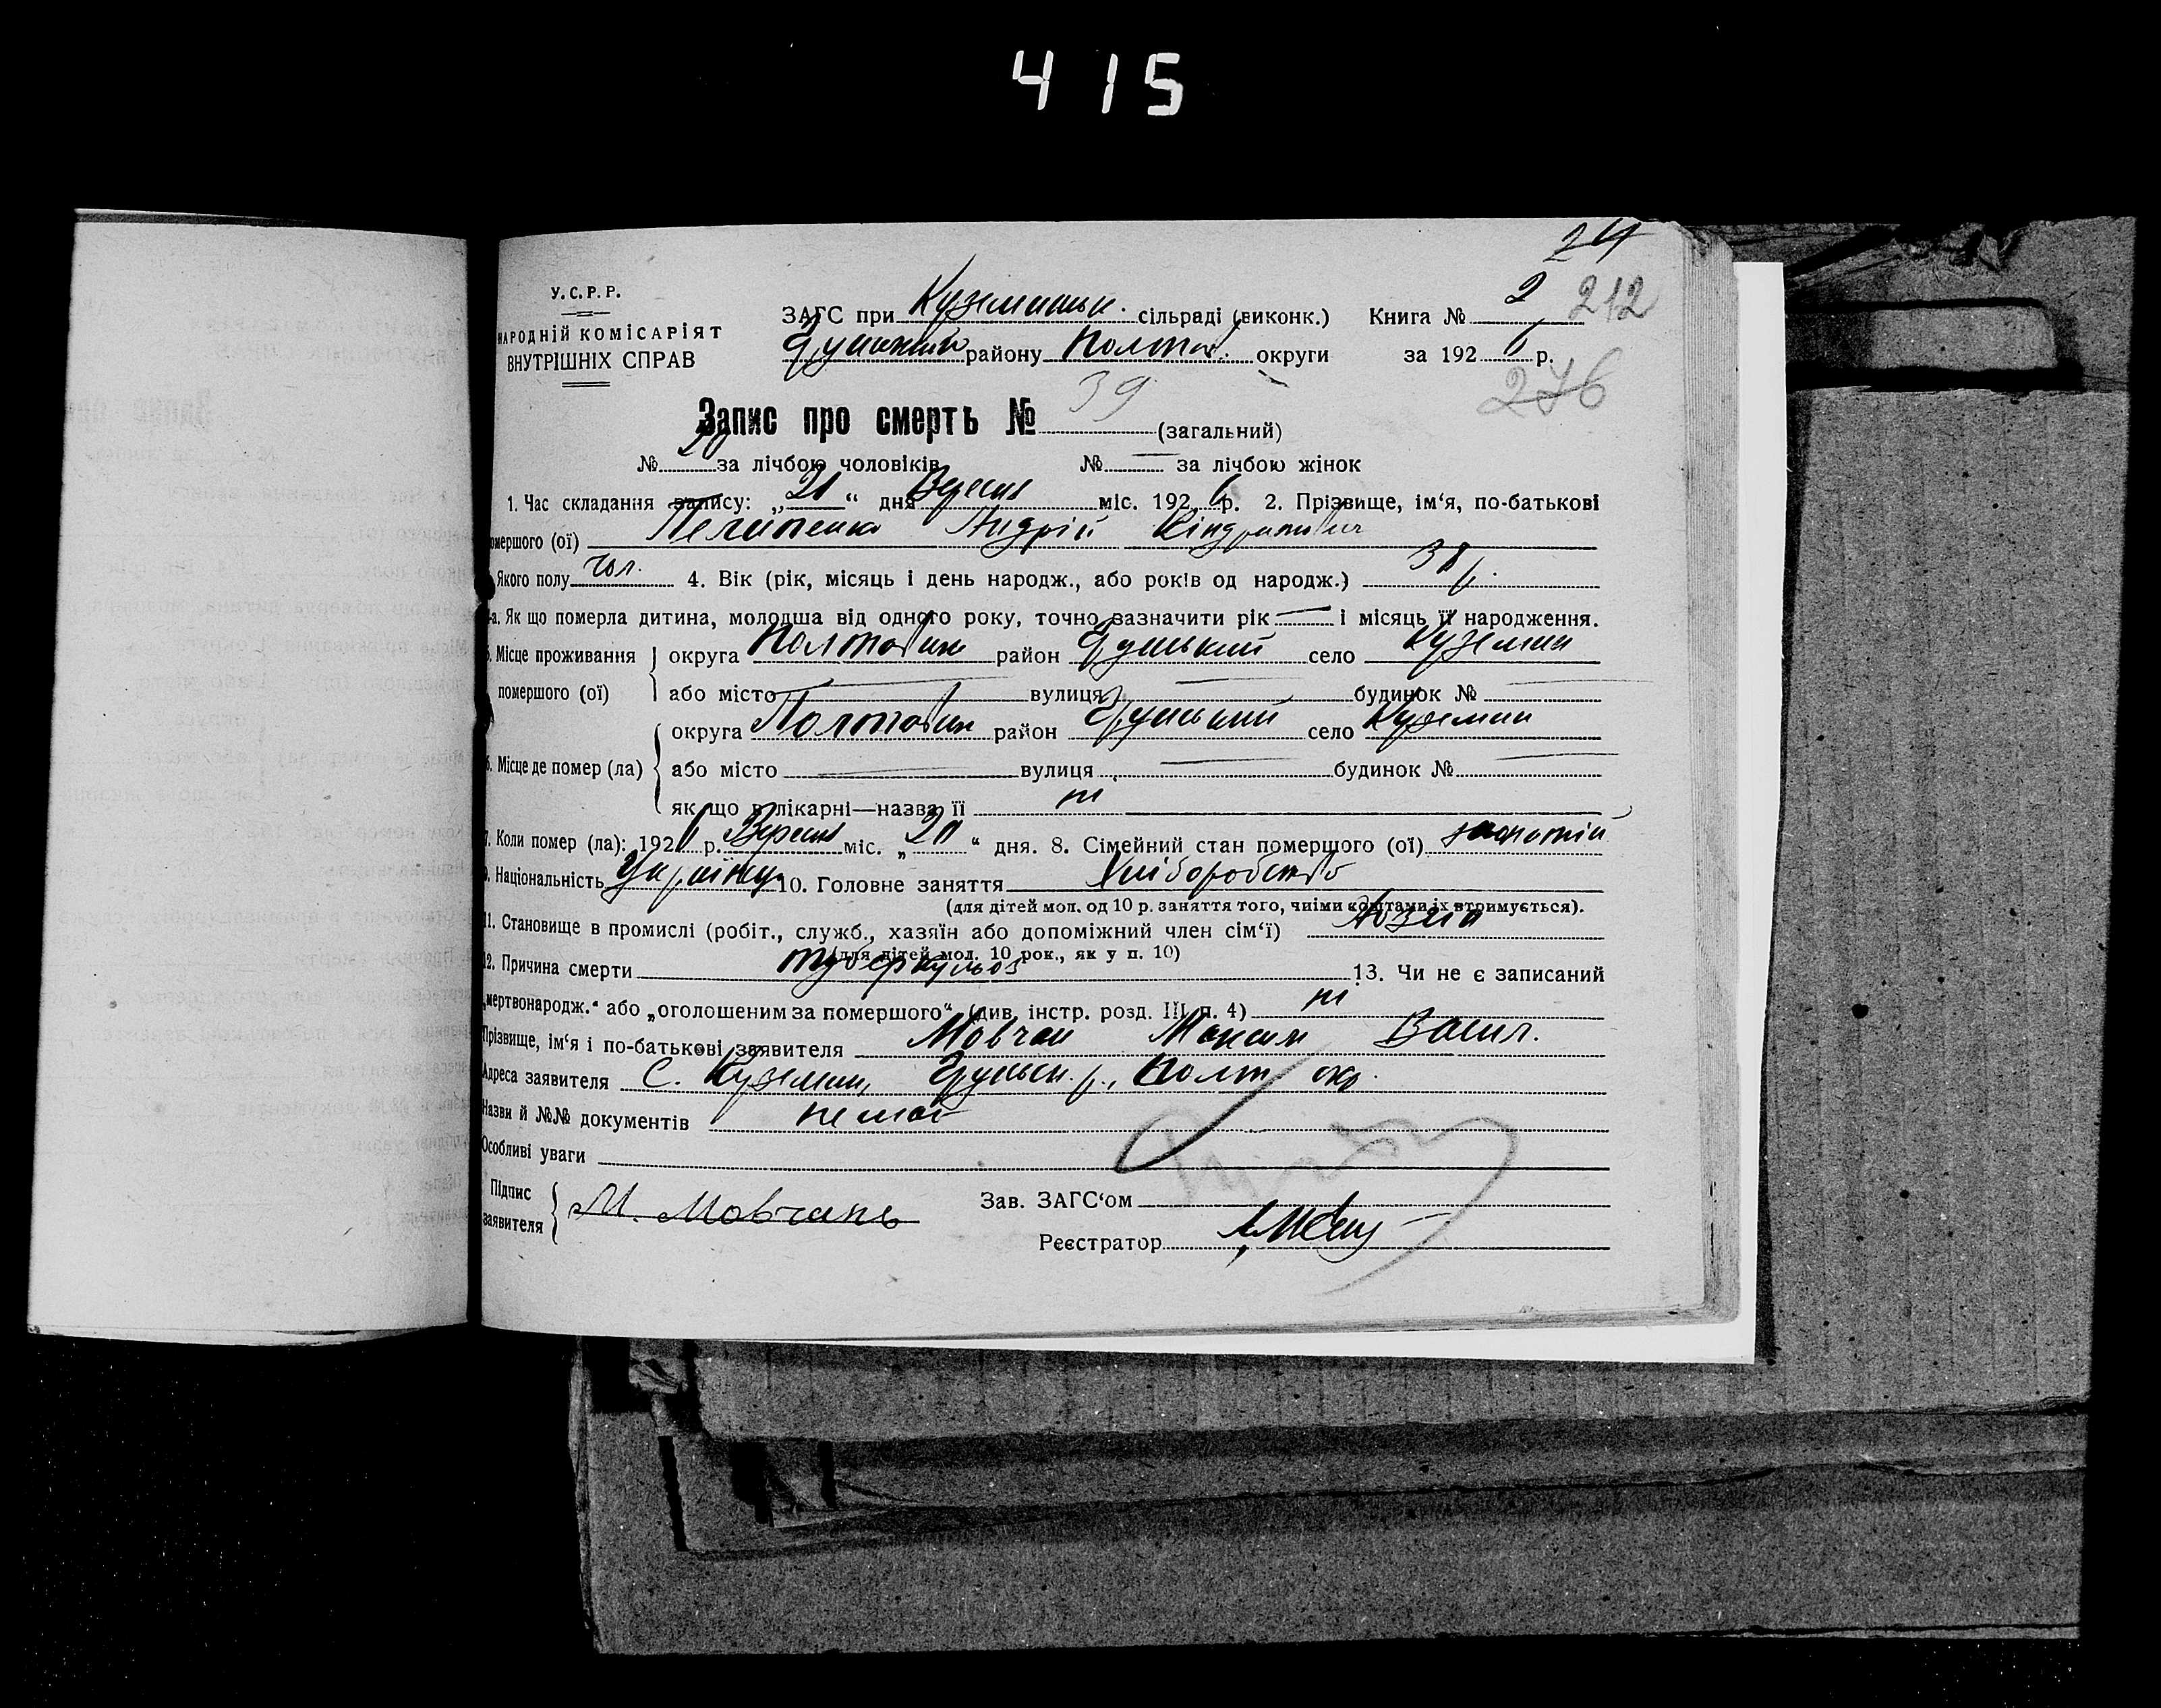 415
24
У.С.Р.Р.
НАРОДНІЙ КОМІСАРІЯТ
ВНУТРІШНІХ СПРАВ
ЗАГС при Куземинськ. сільраді (виконк.) Книга № 2 212
району Полтав. округи за 1926 р.
276
Запис про смерть № 39 (загальний)
№ 20 за лічбою чоловіків № — за лічбою жінок
1. Час складання запису: „21“ дня Вересня міс. 1926 р. 2. Прізвище, ім‘я, по-батькові
помершого (ої) Пелипенко Андрій Кіндратович
Якого полу чол. 4. Вік (рік, місяць і день народж., або років од народж.) 38 р.
-а. Як що померла дитина, молодша від одного року, точно зазначити рік — і місяць її народження.
5. Місце проживання помершого (ої) округа Полтавськ район Груньський село Куземин
або місто — вулиця — будинок № —
6. Місце де помер (ла) округа Полтавськ район Груньський село Куземин
або місто — вулиця — будинок № —
як що в лікарні—назва її ні
7. Коли помер (ла): 1926 р. Вересня міс. „20“ дня. 8. Сімейний стан помершого (ої) жонатий
9. Національність Україн. 10. Головне заняття Хліборобство
(для дітей мол. од 10 р. заняття того, чиїми коштами їх втримується).
11. Становище в промислі (робіт., служб., хазяїн або допоміжний член сім‘ї)
(для дітей мол. 10 рок., як у п. 10)
12. Причина смерти туберкульоз 13. Чи не є записаний
„мертвонародж.“ або „оголошеним за помершого“ (див. інстр. розд. III п. 4) ні
Прізвище, ім‘я і по-батькові заявителя Мовчан Максим Васил.
Адреса заявителя С. Куземин, Груньськ. р., Полт окр.
Назви й №№ документів немає
Особливі уваги
Підпис заявителя М. Мовчань
Зав. ЗАГС‘ом
Реєстратор